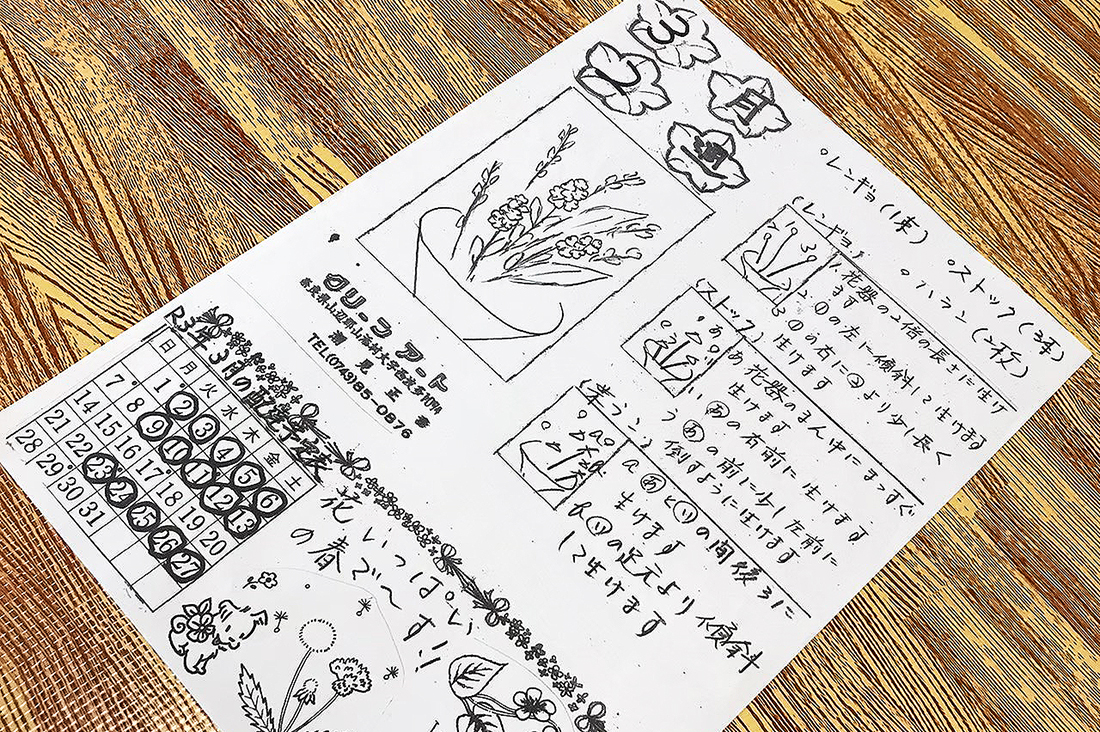 3月
レンギョ(1束)
ストック(2本)
ハラン(2枚)
(レンギョ)
1. 花器の2倍の長さに生け
ます
2 ①の左に傾斜に生けます
3 ①の右に②より少し長く
生けます
(ストック)
あ 花器のまん中にまっすぐ
生けます
い あの右前に生けます
う あの前に少し左前に
倒すように生けます
a あといの間後ろに
生けます
b いの足元より傾斜
に生けます
クリーンアート
TEL(0743)85-0876
R3年3月の配達予定表
日 月 火 水 木 金 土
1 2 3 4 5 6
7 8 9 10 11 12 13
14 15 16 17 18 19 20
21 22 23 24 25 26 27
28 29 30 31
花いっぱい
の春で〜す!!